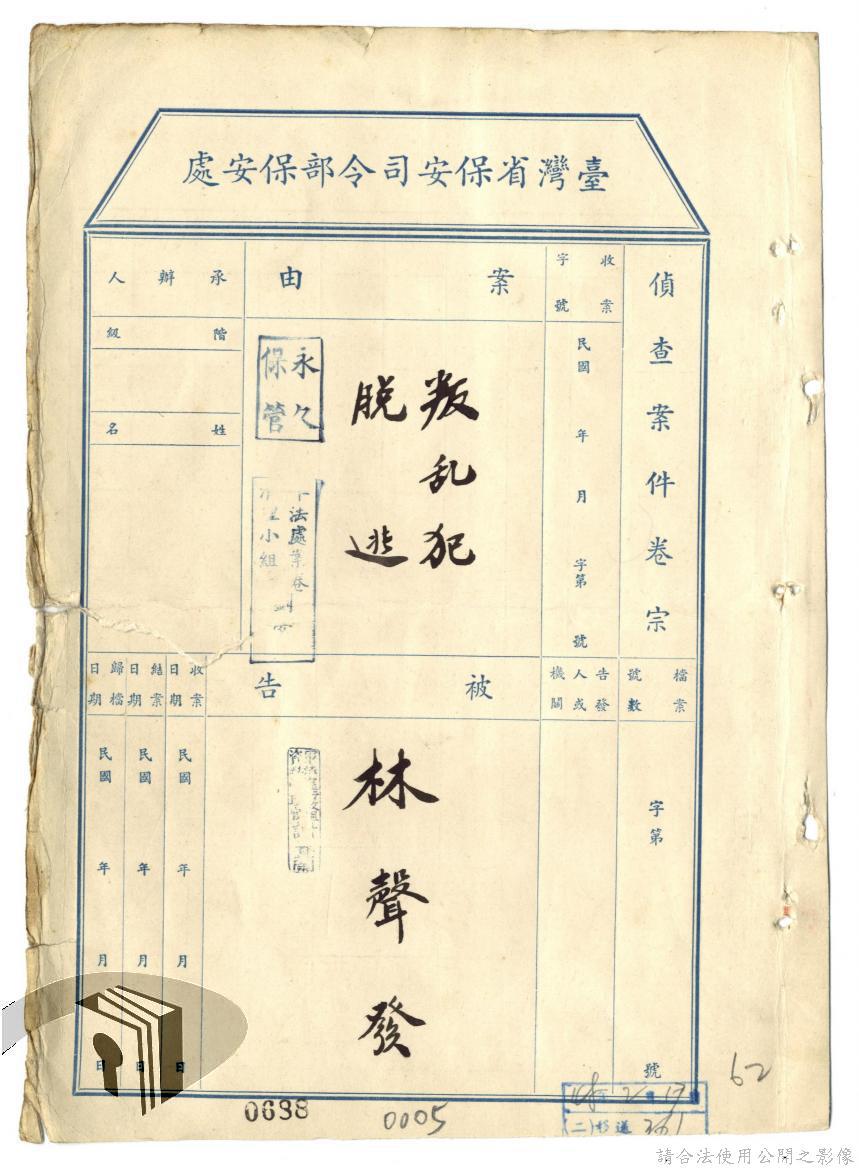 臺灣省保安司令部保安處
偵查案件卷宗
收案
字號
民國 年 月 字第 號
案由
叛乱犯
脱逃
永久
保管
法處案卷
小組
承辦人
階級
姓名
檔案
號數
字第 號
告發
人或
機關
被告
林聲發
收案
日期
民國 年 月 日
結案
日期
民國 年 月 日
歸檔
日期
民國 年 月 日
0638
0005
62
(二)移送
請合法使用公開之影像